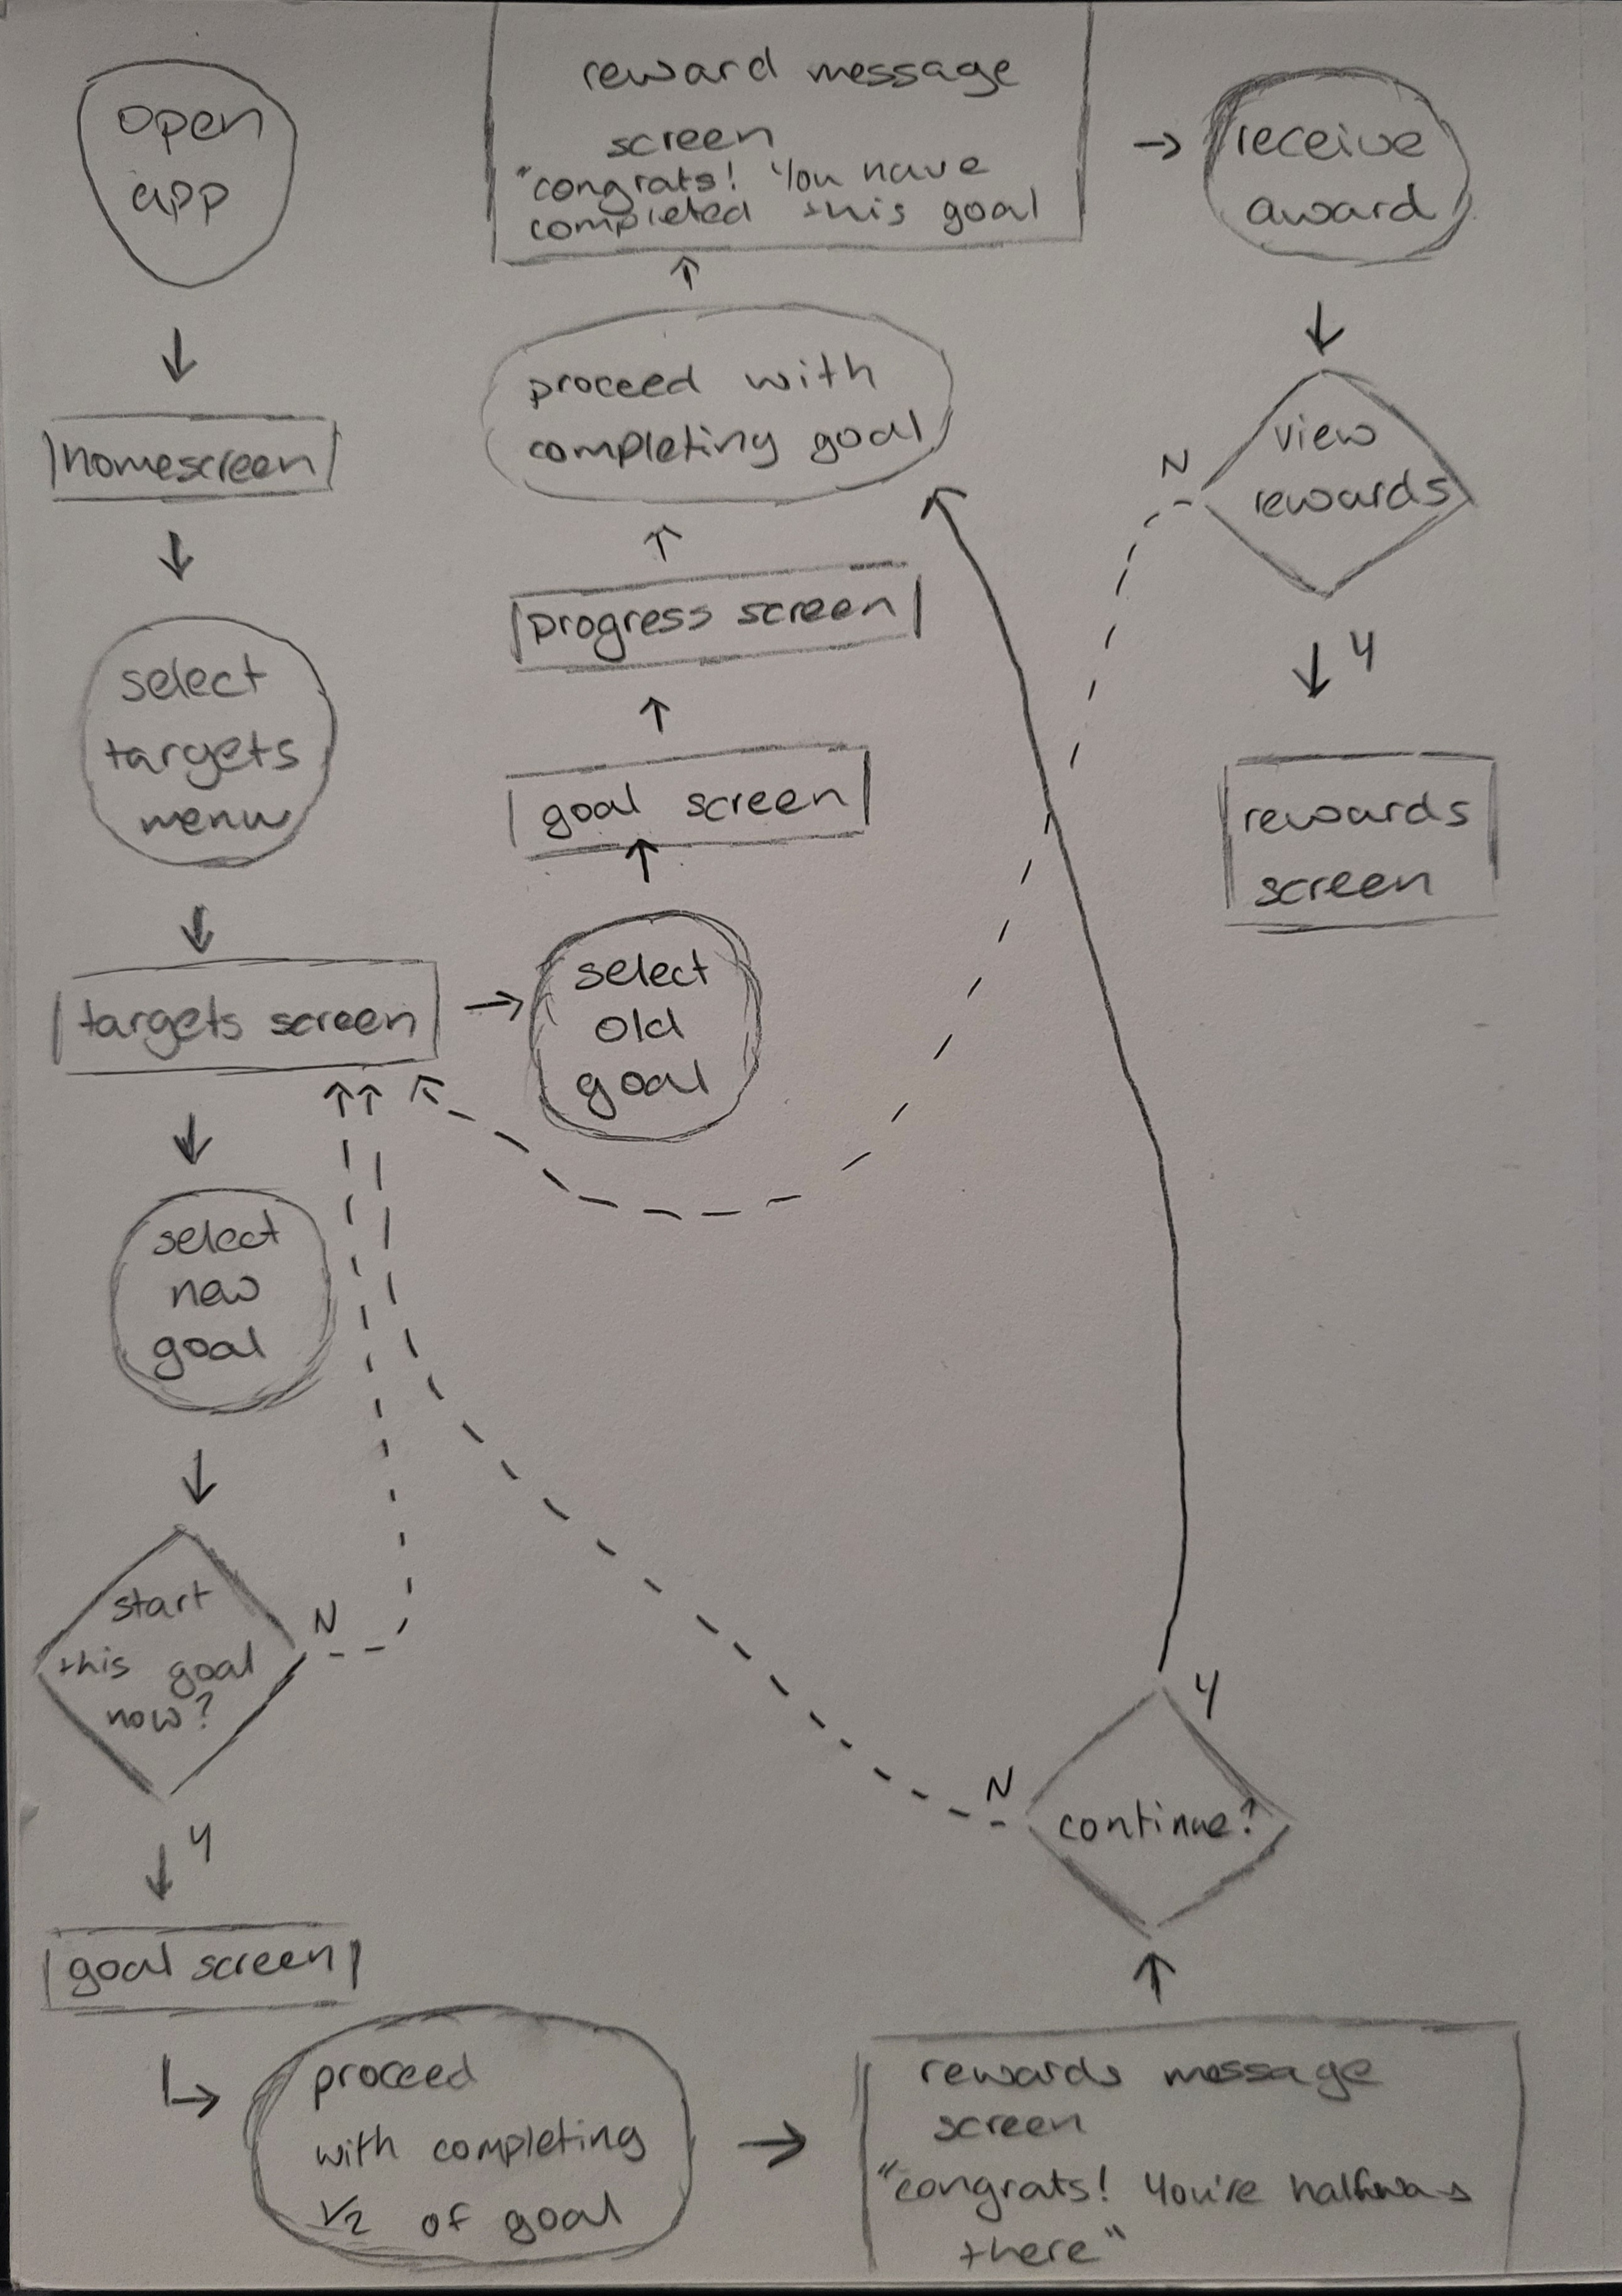 open
app
homescreen
select
targets
menu
targets screen
select
new
goal
start
this goal
now?
N
Y
goal screen
proceed
with completing
1/2 of goal
rewards message
screen
"congrats! You're halfway
there"
continue?
N
Y
select
old
goal
goal screen
progress screen
proceed with
completing goal
reward message
screen
"congrats! You have
completed this goal
receive
award
view
rewards
N
Y
rewards
screen